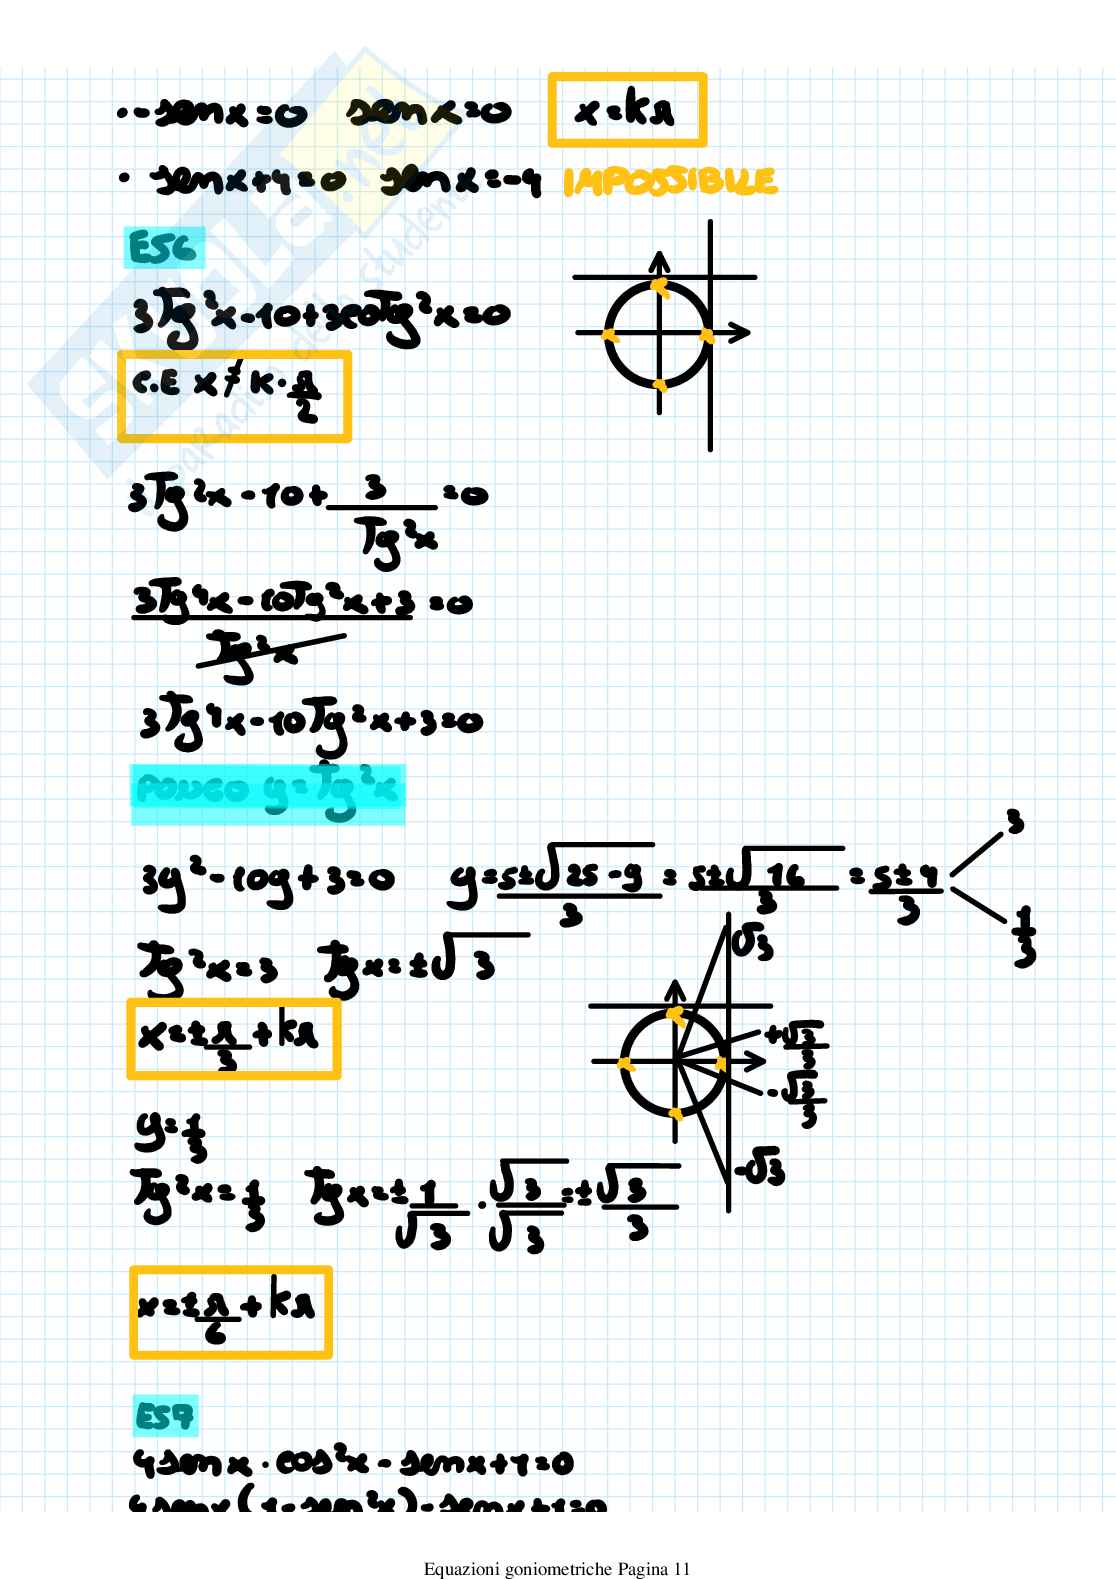 · -sen x = 0   sen x = 0   x = kπ
· sen x + 4 = 0   sen x = -4   IMPOSSIBILE
ES6
3Tg²x - 10 + 3coTg²x = 0
C.E x ≠ k · π/2
3Tg²x - 10 + 3/Tg²x = 0
(3Tg⁴x - 10Tg²x + 3)/Tg²x = 0
3Tg⁴x - 10Tg²x + 3 = 0
PONGO y = Tg²x
3y² - 10y + 3 = 0   y = (5 ± √(25 - 9))/3 = (5 ± √16)/3 = (5 ± 4)/3   3   1/3
Tg²x = 3   Tg x = ± √3   √3
x = ± π/3 + kπ   + √3/3
- √3/3
y = 1/3
Tg²x = 1/3   Tg x = ± 1/√3 · √3/√3 = ± √3/3   -√3
x = ± π/6 + kπ
ES7
4 sen x · cos²x - sen x + 1 = 0
4 sen x (1 - sen²x) - sen x + 1 = 0
Equazioni goniometriche Pagina 11